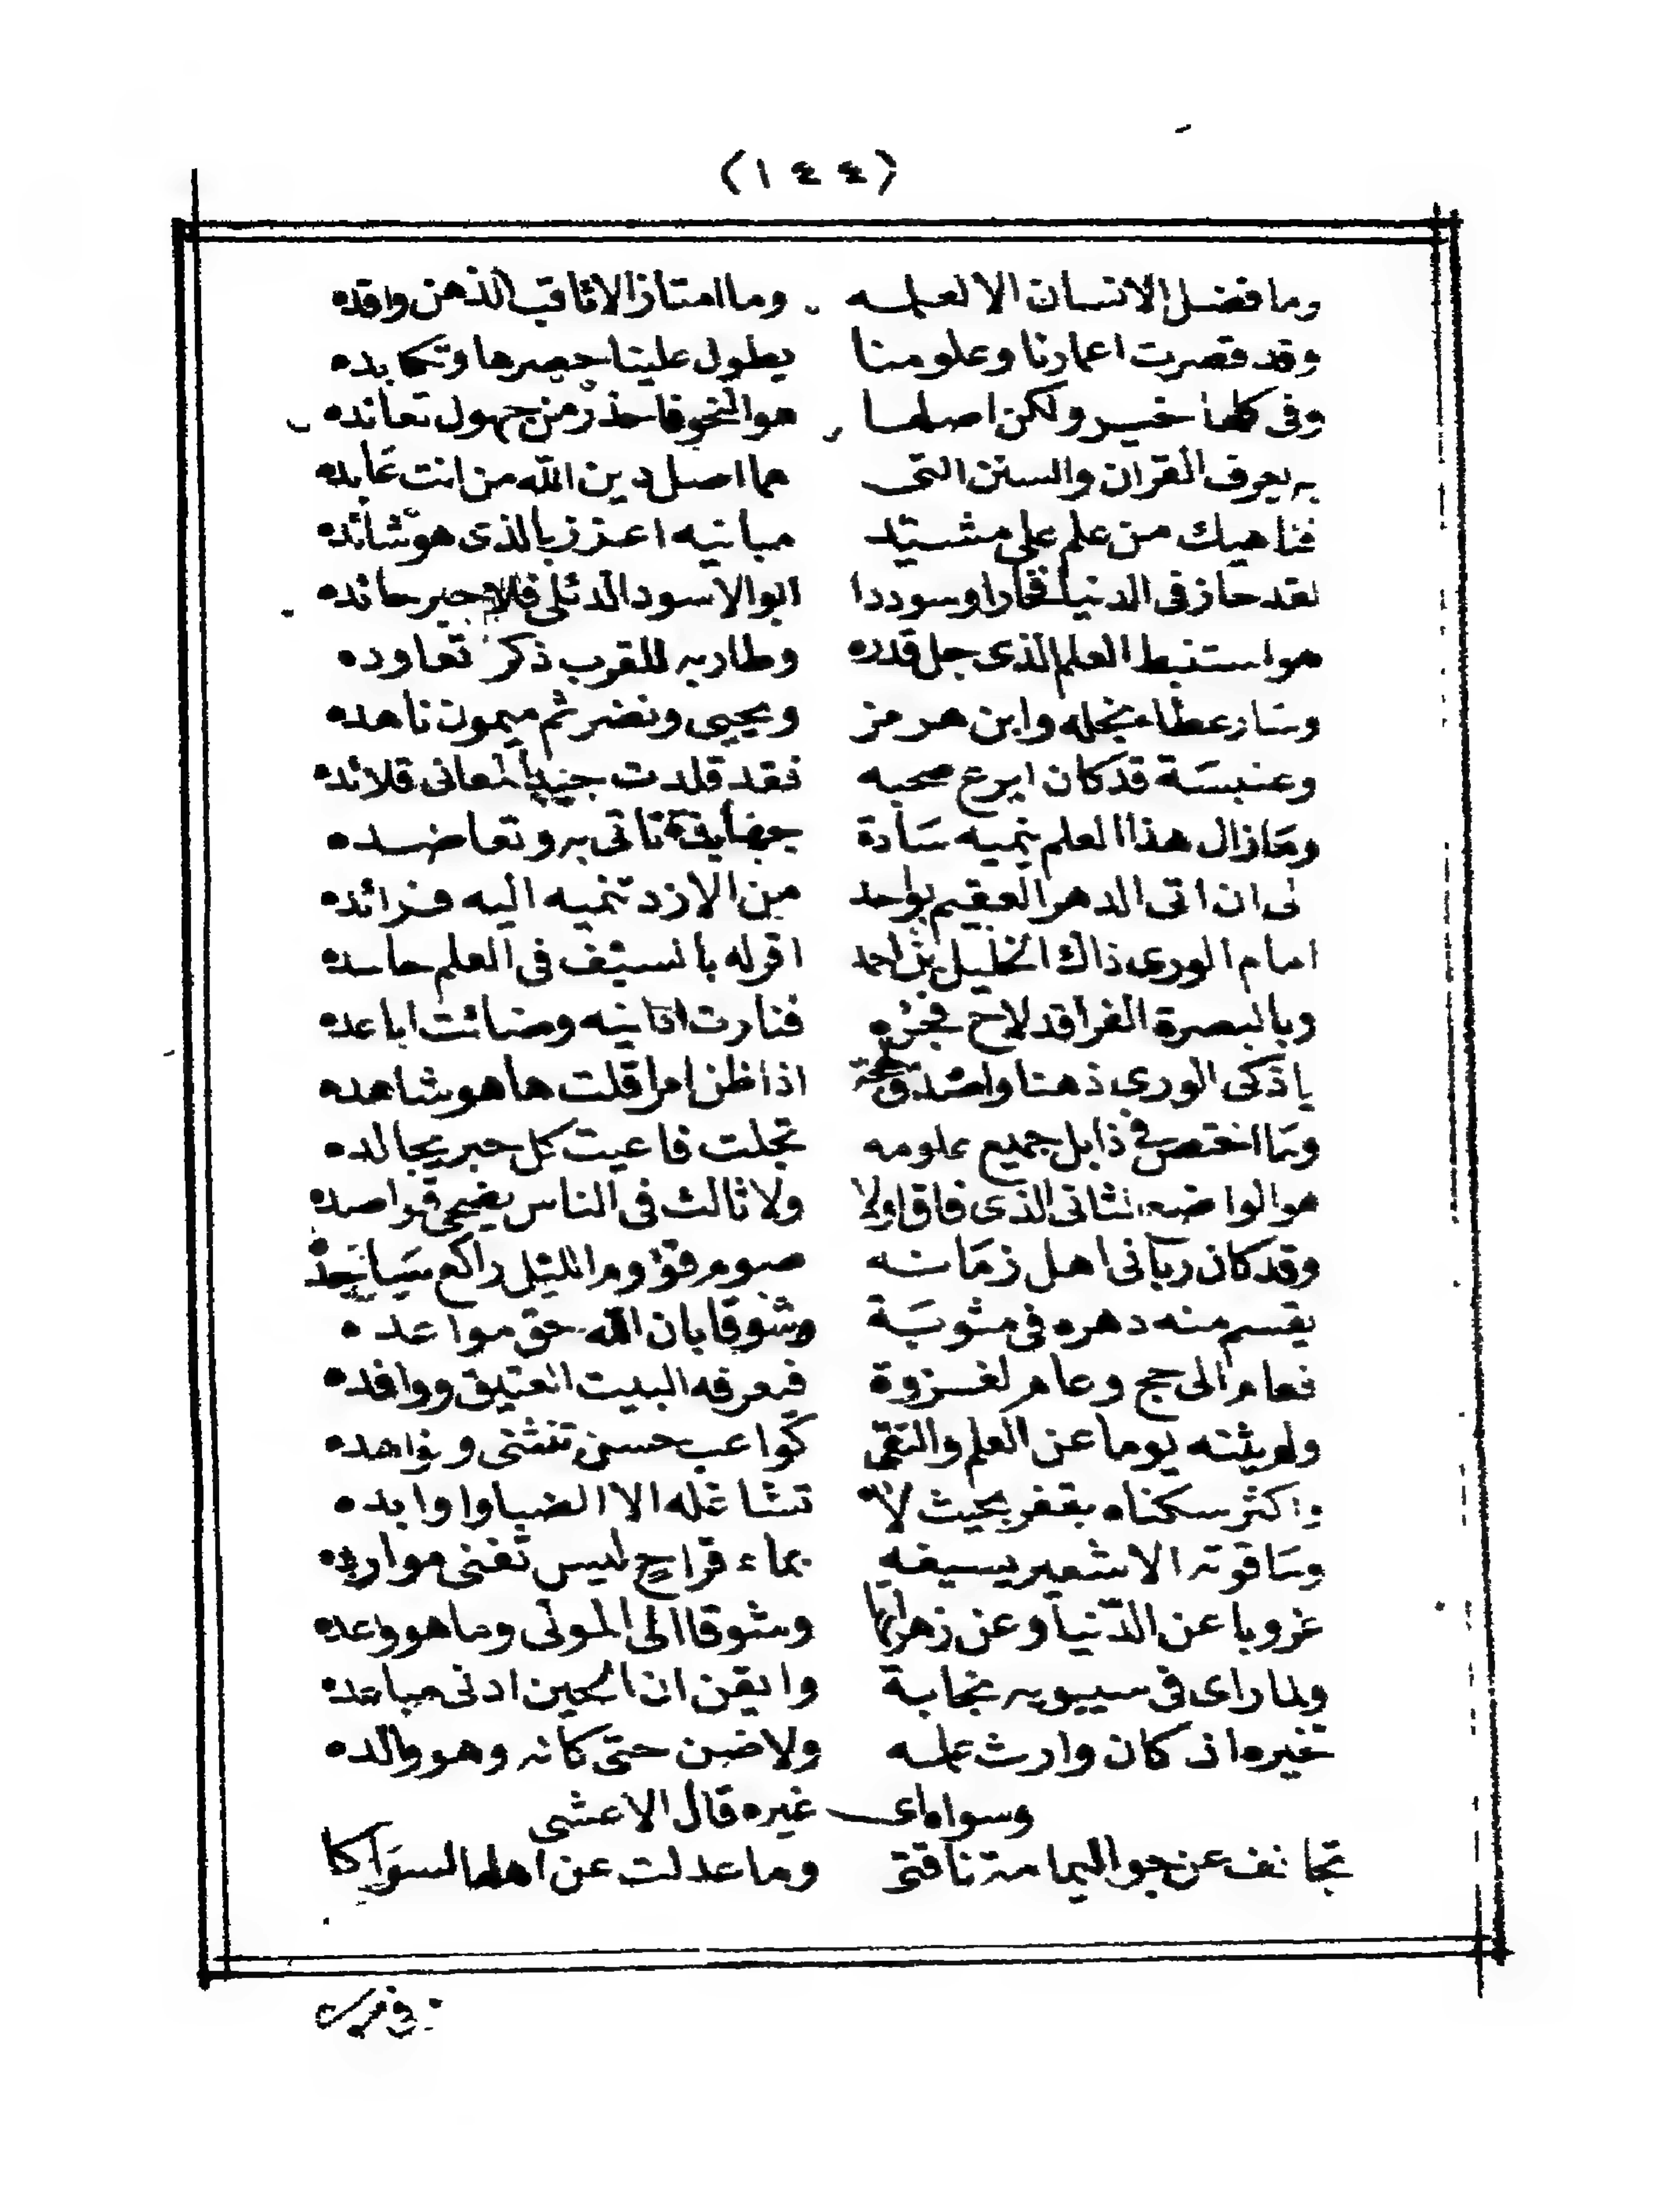 (١٤٤)
وما فضل الانسان الا لعلمه وما امتاز الا ثاقب الذهن واقده
وقد قصرت اعمارنا وعلومنا يطول علينا حصرها وتكابده
وفى كلها خير ولكن اصلها هو النحو فاحذر من جهول تعانده
به يعرف القران والسنن التى هما اصل دين الله من انت عابده
فناهيك من علم على مشيد مبانيه اعزز بالذى هو شائده
لقد حاز فى الدنيا فخارا وسوددا ابو الاسود الدئلى حائده
هو استنبط العلم الذى جل قدره وطار به للقرب ذكر تعاوده
وساد عطا نجله وابن هرمز ويحيى ونضر ثم ميمون ناهده
وعنبسة قد كان ابرع صحبه فقد قلدت المعانى قلائده
وما زال هذا العلم ينميه سادة جهابذة تاتى به وتعاضده
لى ان اتى الدهر العقيم بواحد من الازد تنميه اليه فرائده
امام الورى ذاك الخليل بن احمد اقر له بالسبق فى العلم حاسده
وبالبصرة الغرا قد لاح فجره فنارت ادانيه وضائت اباعده
يا ذكى الورى ذهنا واصدق لهجة اذا ظن امرا قلت ها هو شاهده
وما اختص فى ذا بل جميع علومه تجلت فاعيت كل حبر يجالده
هو الواضع الثانى الذى فاق اولا ولا ثالث فى الناس يضحى قواصده
وقد كان ربانى اهل زمانه صوم قؤوم الليل راكع ساجد
يقسم منه دهره فى مثوبة وشوقا بان الله حق مواعده
فعام الى حج وعام لغزوة فيعرفه البيت العتيق ووافده
ولم يثنه يوما عن العلم والتقى كواعب حسن تنثنى ونواهده
واكثر سكناه بقفر بحيث لا تشاغله الا الضبا واوابده
وما قوته الا شعير يسيغه بماء قراح ليس تغنى موارده
عزوبا عن الدنيا وعن زهراتها وشوقا الى المولى وما هو واعده
ولما راى فى سيبويه نجابة وايقن ان الحين ادنى مباعده
تخيره اذ كان وارث علمه ولاضبن حتى كانه وهو والده
وسواه اى غيره قال الاعشى
تجانف عن جو اليمامة ناقتى وما عدلت عن اهلها لسواكا